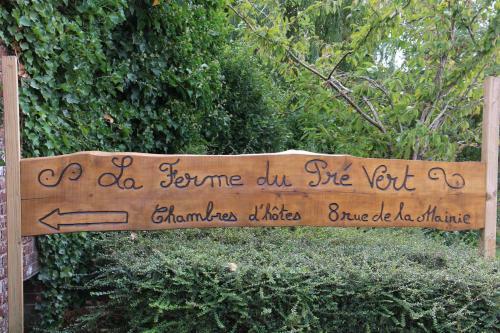 La Ferme du Pré Vert
Chambres d'hôtes 8 rue de la Mairie